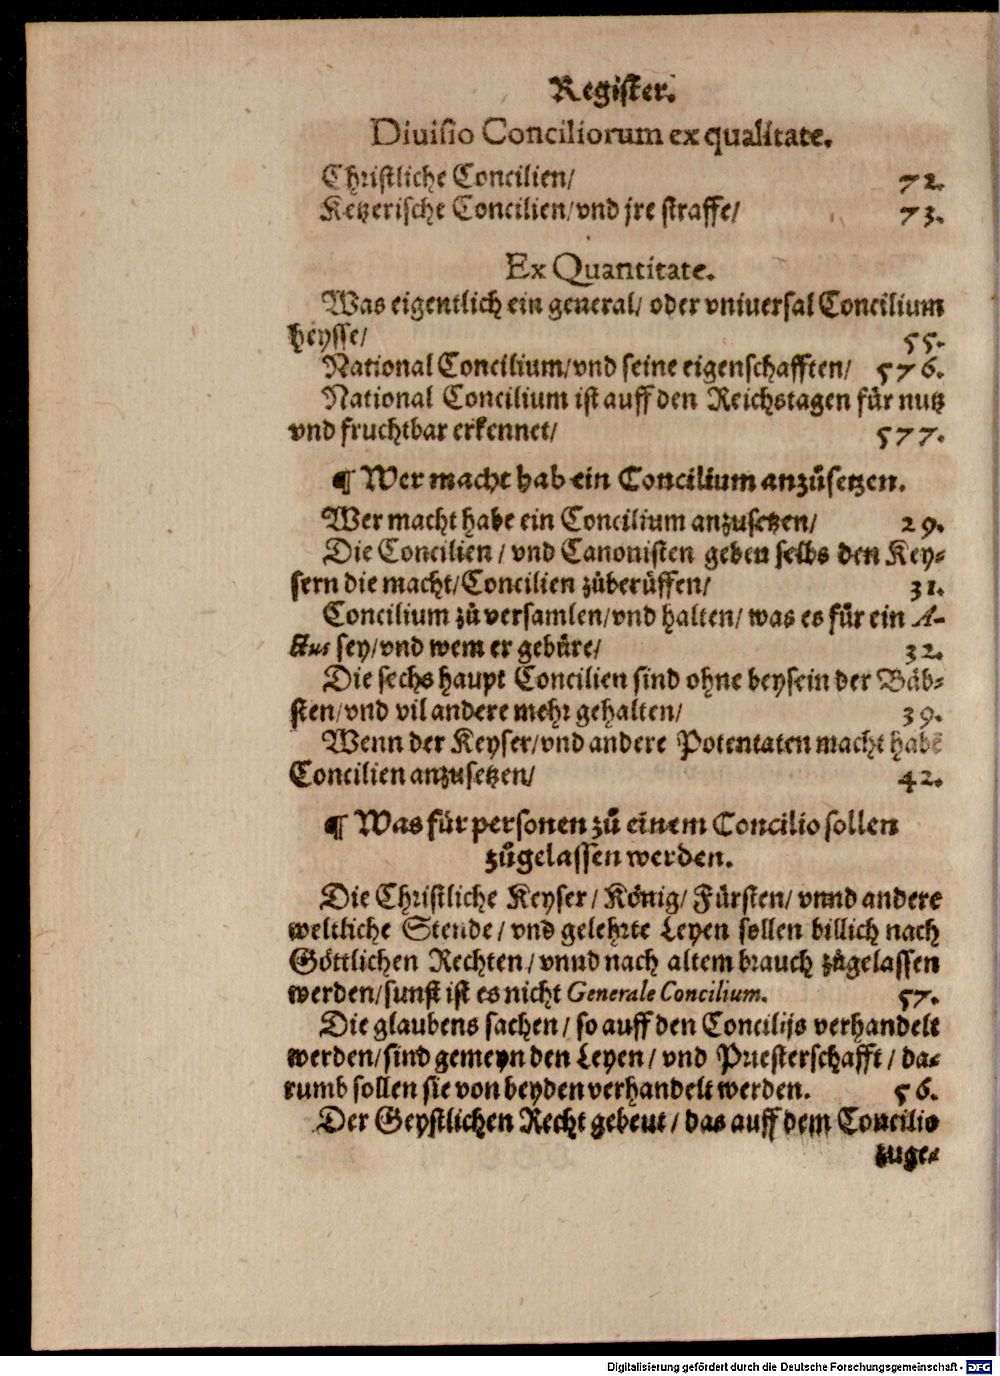 Register.
Diuisio Conciliorum ex qualitate.
Christliche Concilien/ 72.
Ketzerische Concilien/vnd jre straffe/ 73.
Ex Quantitate.
Was eigentlich ein general/ oder vniuersal Concilium
heysse/ 55.
National Concilium/vnd seine eigenschafften/ 576.
National Concilium ist auff den Reichstagen für nutz
vnd fruchtbar erkennet/ 577.
¶ Wer macht hab ein Concilium anzůsetzen.
Wer macht habe ein Concilium anzusetzen/ 29.
Die Concilien / vnd Canonisten geben selbs den Key⸗
sern die macht/Concilien zůberůffen/ 31.
Concilium zů versamlen/vnd halten/ was es für ein A-
ctus sey/vnd wem er gebüre/ 32.
Die sechs haupt Concilien sind ohne beysein der Bäb⸗
sten/vnd vil andere mehr gehalten/ 39.
Wenn der Keyser/vnd andere Potentaten macht habē
Concilien anzusetzen/ 42.
¶ Was für personen zů einem Concilio sollen
zůgelassen werden.
Die Christliche Keyser / König/ Fürsten/ vnnd andere
weltliche Stende / vnd gelehrte Leyen sollen billich nach
Göttlichen Rechten / vnnd nach altem brauch zůgelassen
werden/sunst ist es nicht Generale Concilium. 57.
Die glaubens sachen / so auff den Concilijs verhandelt
werden/sind gemeyn den Leyen / vnd Priesterschafft / da⸗
rumb sollen sie von beyden verhandelt werden. 56.
Der Geystlichen Recht gebeut / das auff dem Concilio
zuge⸗
Digitalisierung gefördert durch die Deutsche Forschungsgemeinschaft - DFG